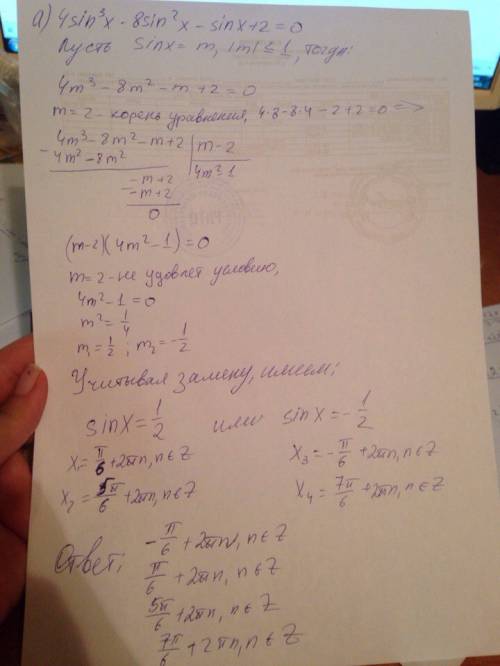 а) 4sin³x - 8sin²x - sinx + 2 = 0
Пусть sinx = m, |m| ≤ 1, тогда:
4m³ - 8m² - m + 2 = 0
m = 2 - корень уравнения, 4·8 - 8·4 - 2 + 2 = 0 =>
4m³ - 8m² - m + 2 | m - 2
- 4m² - 8m² | 4m² - 1
- m + 2
- - m + 2
0
(m - 2)(4m² - 1) = 0
m = 2 - не удовлет условию,
4m² - 1 = 0
m² = 1/4
m₁ = 1/2 ; m₂ = -1/2
Учитывая замену, имеем:
sinx = 1/2 или sinx = -1/2
x₁ = π/6 + 2πn, n ∈ Z x₃ = -π/6 + 2πn, n ∈ Z
x₂ = 5π/6 + 2πn, n ∈ Z x₄ = 7π/6 + 2πn, n ∈ Z
Ответ: -π/6 + 2πn, n ∈ Z
π/6 + 2πn, n ∈ Z
5π/6 + 2πn, n ∈ Z
7π/6 + 2πn, n ∈ Z